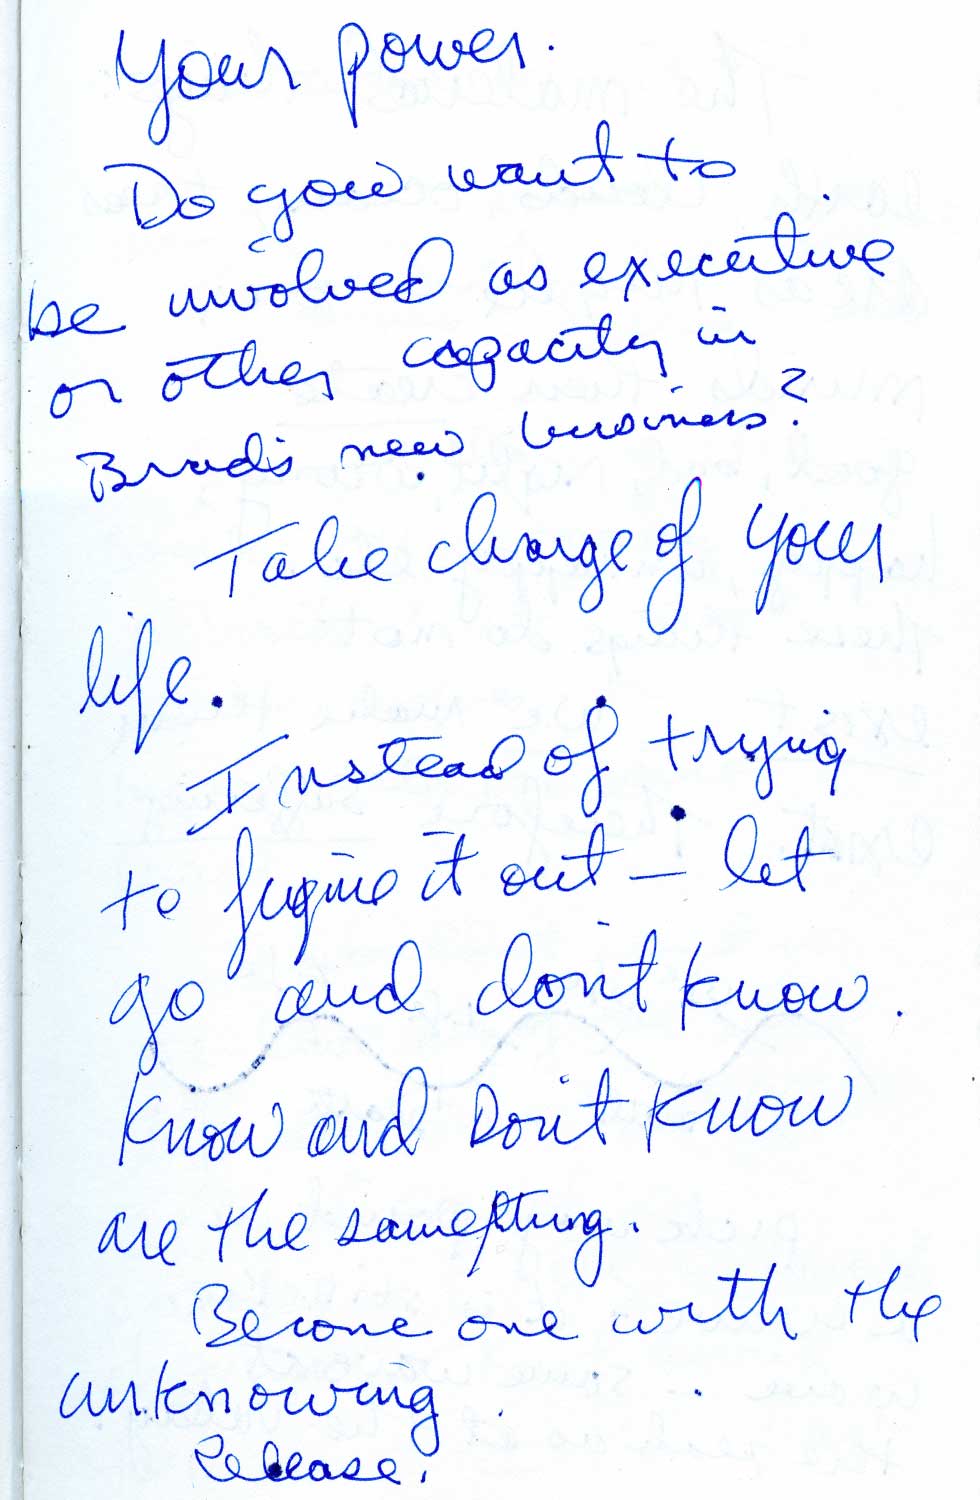 Your power.
Do you want to
be involved as executive
or other capacity in
Brad's new business?
Take charge of your
life.
Instead of trying
to figure it out — let
go and don't know.
Know and Don't Know
are the same thing.
Become one with the
unknowing
Release.